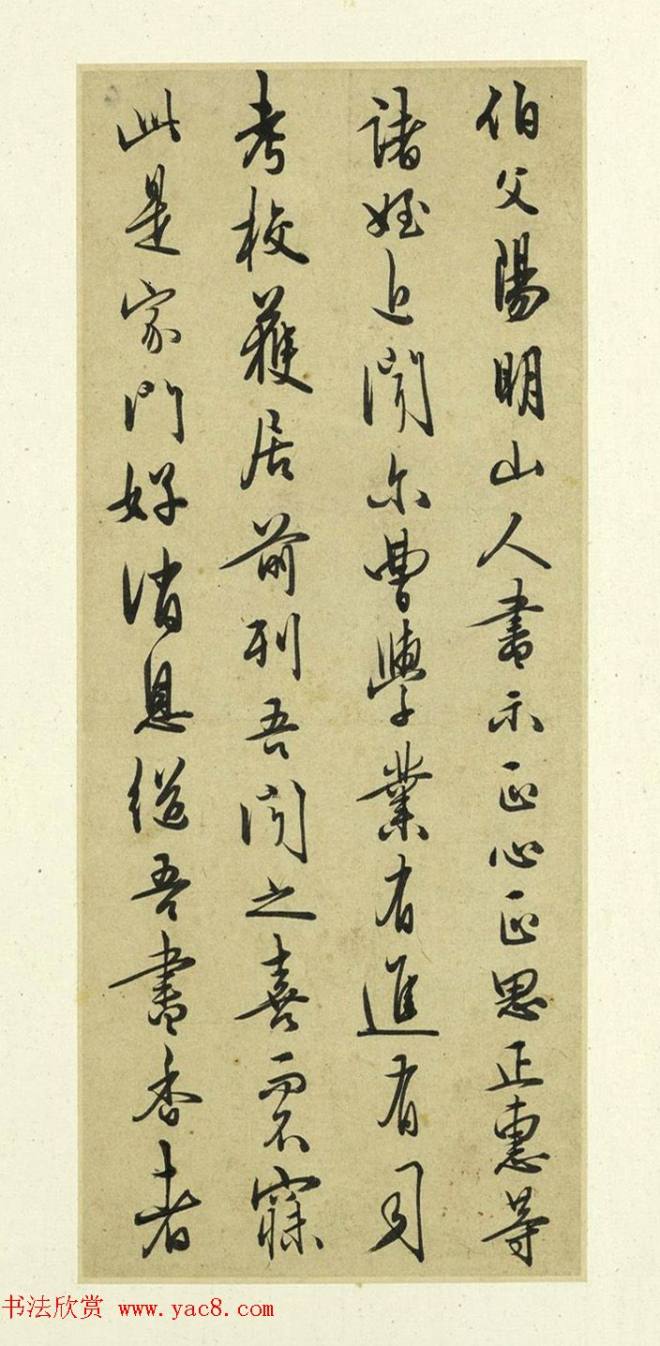 伯父陽明山人書示正心正思正惠等
諸姪近聞尔曹學業有進有司
考校獲居前列吾聞之喜而不寐
此是家門好消息繼吾書香者
书法欣赏 www.yac8.com